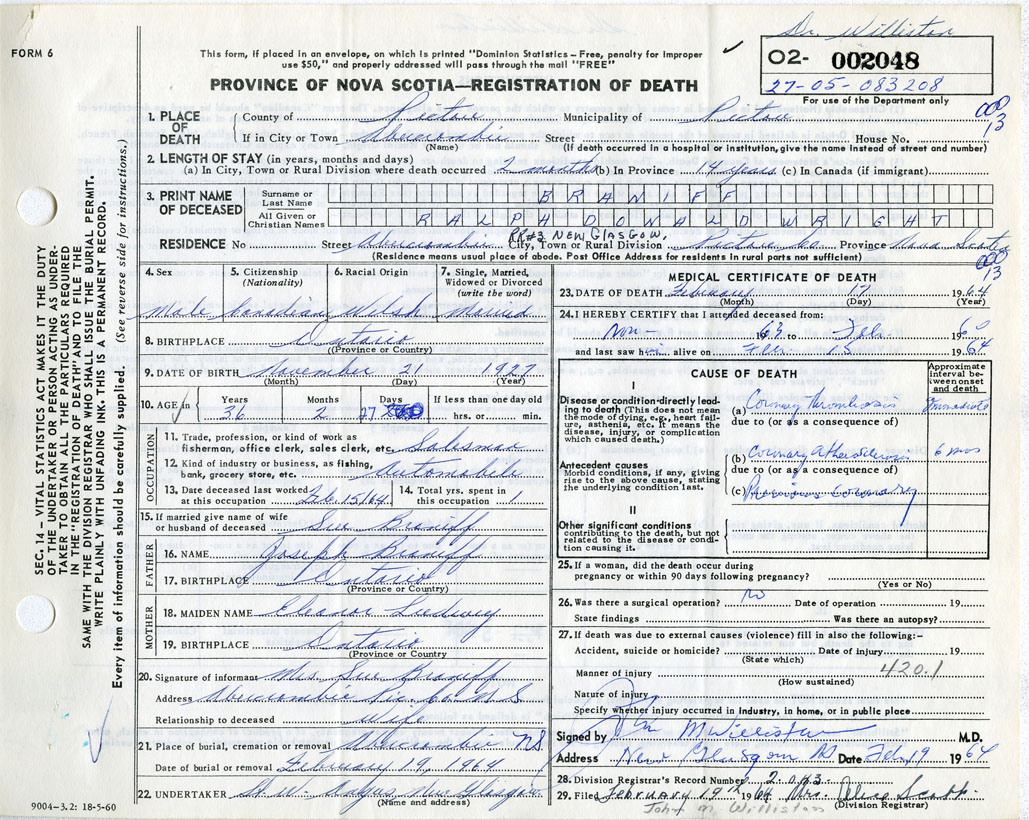 Dr. Williston
FORM 6
This form, if placed in an envelope, on which is printed "Dominion Statistics – Free, penalty for improper
use $50," and properly addressed will pass through the mail "FREE"
✓
O2- 002048
27-05-083208
For use of the Department only
PROVINCE OF NOVA SCOTIA—REGISTRATION OF DEATH
1. PLACE OF DEATH
County of Pictou Municipality of Pictou
13
If in City or Town Abercrombie Street House No.
(Name) (If death occurred in a hospital or institution, give the name instead of street and number)
2. LENGTH OF STAY (in years, months and days)
(a) In City, Town or Rural Division where death occurred 2 months (b) In Province 14 years (c) In Canada (if immigrant)
3. PRINT NAME OF DECEASED
Surname or Last Name BRANIFF
All Given or Christian Names RALPH DONALD WRIGHT
RR#3 NEW GLASGOW,
RESIDENCE No Street Abercrombie City, Town or Rural Division Pictou Co. Province Nova Scotia
(Residence means usual place of abode. Post Office Address for residents in rural parts not sufficient)
13
SEC. 14 – VITAL STATISTICS ACT MAKES IT THE DUTY
OF THE UNDERTAKER OR PERSON ACTING AS UNDER-
TAKER TO OBTAIN ALL THE PARTICULARS REQUIRED
IN THE "REGISTRATION OF DEATH" AND TO FILE THE
SAME WITH THE DIVISION REGISTRAR WHO SHALL ISSUE THE BURIAL PERMIT.
WRITE PLAINLY WITH UNFADING INK. THIS IS A PERMANENT RECORD.
Every item of information should be carefully supplied. (See reverse side for instructions.)
4. Sex
Male
5. Citizenship
(Nationality)
Canadian
6. Racial Origin
Welsh
7. Single, Married,
Widowed or Divorced
(write the word)
Married
8. BIRTHPLACE Ontario
(Province or Country)
9. DATE OF BIRTH November 21 1927
(Month) (Day) (Year)
10. AGE in
Years Months Days If less than one day old
36 2 27 hrs. or min.
OCCUPATION
11. Trade, profession, or kind of work as
fisherman, office clerk, sales clerk, etc. Salesman
12. Kind of industry or business, as fishing,
bank, grocery store, etc. Automobile
13. Date deceased last worked
at this occupation Feb 15/64
14. Total yrs. spent in
this occupation 1
15. If married give name of wife
or husband of deceased Sue Braniff
FATHER
16. NAME Joseph Braniff
17. BIRTHPLACE Ontario
(Province or Country)
MOTHER
18. MAIDEN NAME Eleanor Ludwig
19. BIRTHPLACE Ontario
(Province or Country)
20. Signature of informant Mrs. Sue Braniff
Address Abercrombie Pic. Co. N S
Relationship to deceased wife
21. Place of burial, cremation or removal Abercrombie NS
Date of burial or removal February 19, 1964
22. UNDERTAKER H. W. Angus New Glasgow
(Name and address)
9004-3.2: 18-5-60
MEDICAL CERTIFICATE OF DEATH
23. DATE OF DEATH February 17 1964
(Month) (Day) (Year)
24. I HEREBY CERTIFY that I attended deceased from:
Nov – 1963 to Feb
and last saw him alive on Feb 15 1964
CAUSE OF DEATH
Approximate
interval be-
tween onset
and death
I
Disease or condition directly lead-
ing to death (This does not mean
the mode of dying, e.g., heart fail-
ure, asthenia, etc. It means the
disease, injury, or complication
which caused death.)
(a) Coronary Thrombosis Immediate
due to (or as a consequence of)
Antecedent causes
Morbid conditions, if any, giving
rise to the above cause, stating
the underlying condition last.
(b) Coronary Atherosclerosis 6 mos
due to (or as a consequence of)
(c) Previous Coronary
II
Other significant conditions
contributing to the death, but not
related to the disease or condi-
tion causing it.
25. If a woman, did the death occur during
pregnancy or within 90 days following pregnancy?
(Yes or No)
26. Was there a surgical operation? No Date of operation 19
State findings Was there an autopsy?
27. If death was due to external causes (violence) fill in also the following:–
Accident, suicide or homicide? Date of injury 19
(State which)
Manner of injury 420.1
(How sustained)
Nature of injury
Specify whether injury occurred in industry, in home, or in public place
Signed by J M Williston M.D.
Address New Glasgow NS Feb 19 1964
28. Division Registrar's Record Number 2043
29. Filed February 19th 1964 Mrs. Alice Scott
(Division Registrar)
John M. Williston